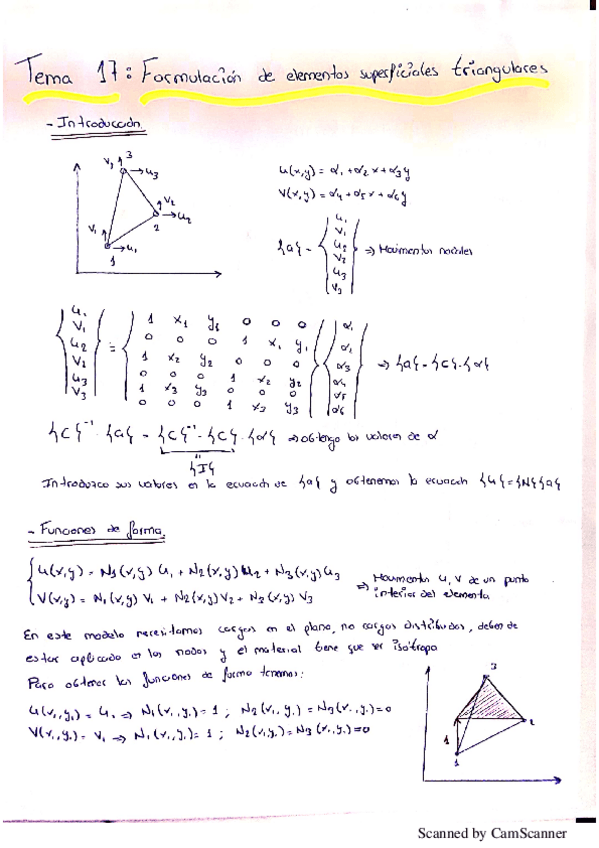 Tema 17: Formulación de elementos superficiales triangulares
- Introducción
V3 3 u3
V2 u2 2
V1 u1 1
u(x,y) = α1 + α2 x + α3 y
V(x,y) = α4 + α5 x + α6 y
{a} = { u1 V1 u2 V2 u3 V3 } ⇒ Movimientos nodales
u1 1 x1 y1 0 0 0 α1
V1 0 0 0 1 x1 y1 α2
u2 = 1 x2 y2 0 0 0 α3 ⇒ {a} = {C}·{α}
V2 0 0 0 1 x2 y2 α4
u3 1 x3 y3 0 0 0 α5
V3 0 0 0 1 x3 y3 α6
{C}⁻¹·{a} = {C}⁻¹·{C}·{α} ⇒ obtengo los valores de α
"
{I}
Introduzco sus valores en la ecuación de {a} y obtenemos la ecuación {u}={N}{a}
- Funciones de forma
u(x,y) = N1(x,y) u1 + N2(x,y) u2 + N3(x,y) u3
V(x,y) = N1(x,y) V1 + N2(x,y) V2 + N3(x,y) V3
⇒ Movimientos u, v de un punto
interior del elemento
En este modelo necesitamos cargas en el plano, no cargas distribuidas, deben de
estar aplicado en los nodos y el material tiene que ser isótropo
Para obtener las funciones de forma tenemos:
u(x1,y1) = u1 ⇒ N1(x1,y1) = 1 ; N2(x1,y1) = N3(x1,y1) = 0
V(x1,y1) = V1 ⇒ N1(x1,y1) = 1 ; N2(x1,y1) = N3(x1,y1) = 0
3
1 2
1
Scanned by CamScanner